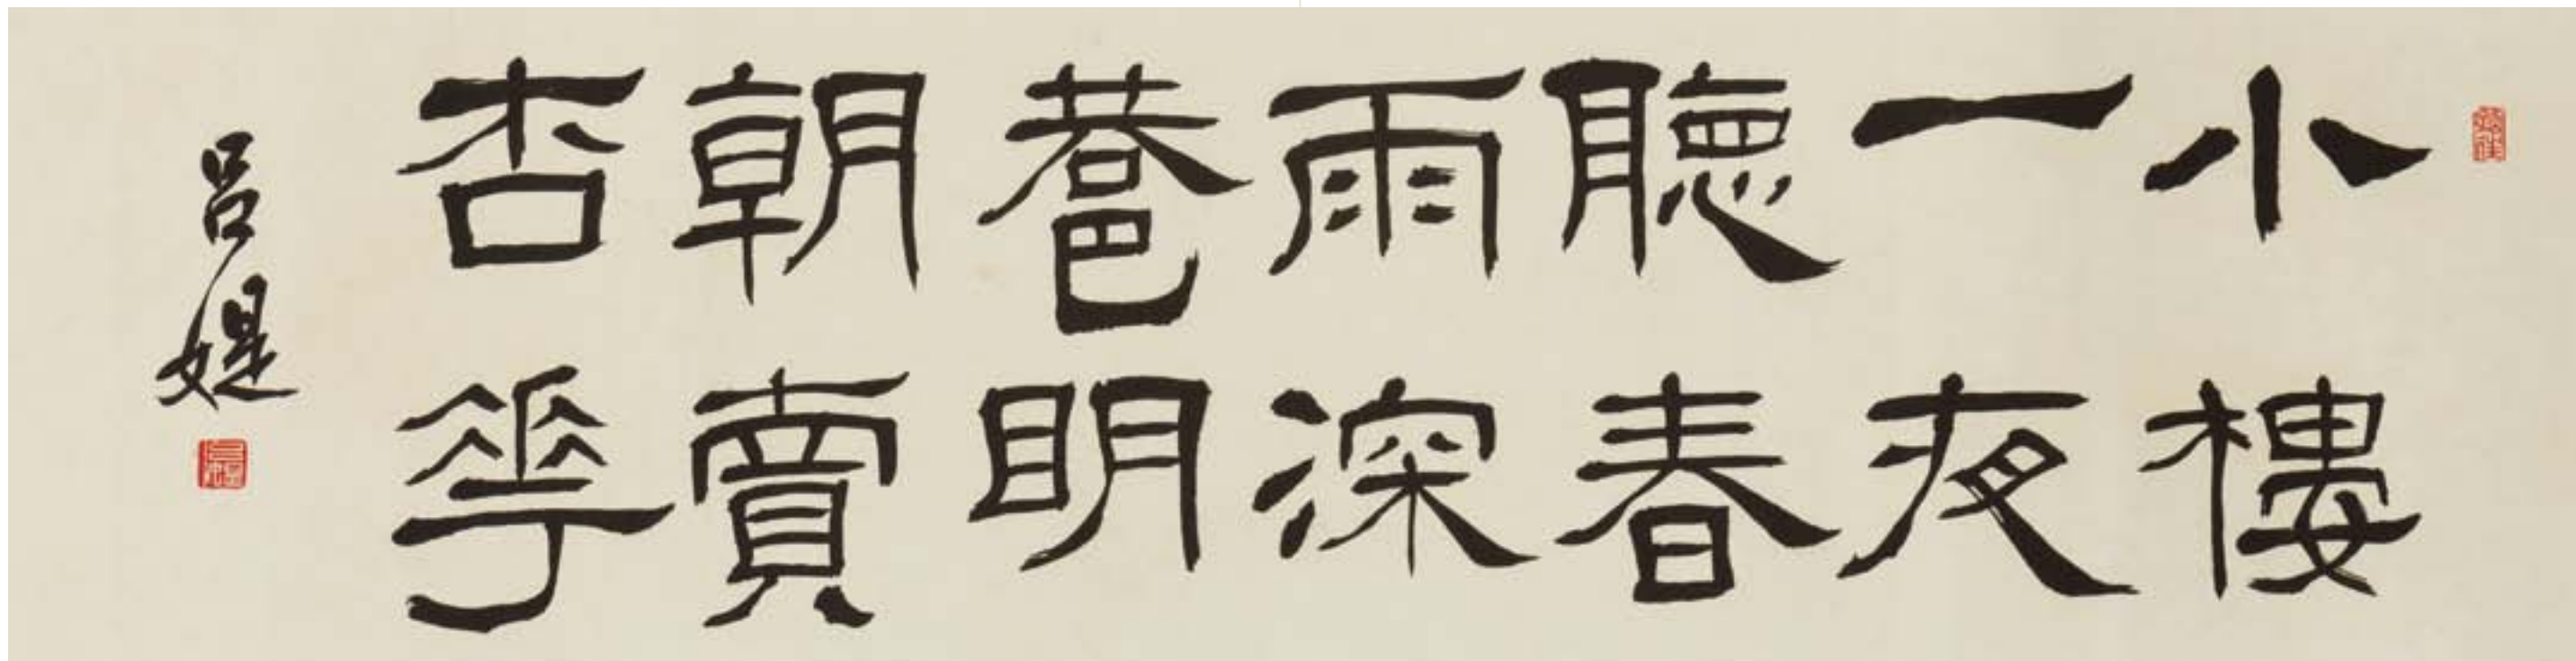 小樓
一夜
聽春
雨深
巷明
朝賣
杏華
呂媞